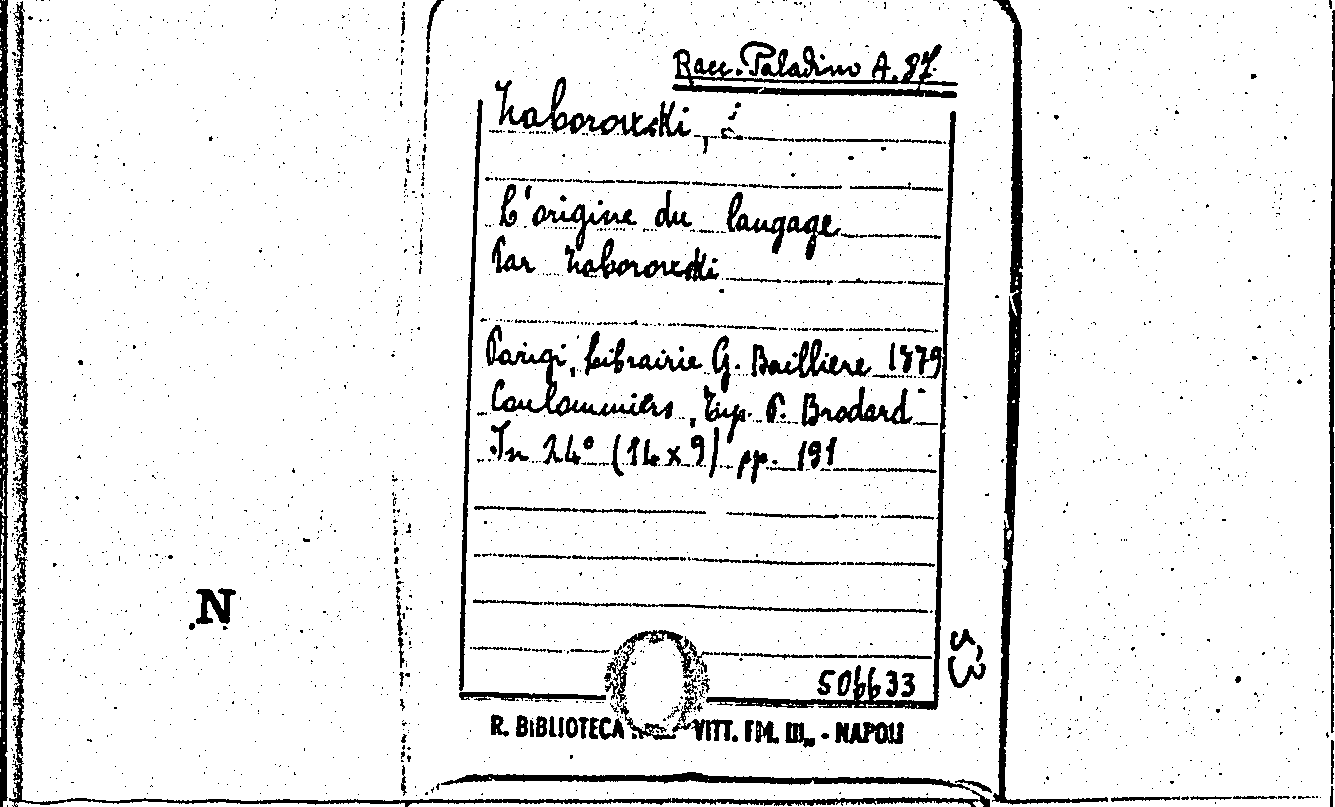 Racc. Paladino A. 87.
Zaborowski,
L'origine du langage
Par Zaborowski
Parigi, Librairie G. Baillière 1879
Coulommiers, Typ. P. Brodard
In 24° (14 x 9) pp. 191
N
506633
R. BIBLIOTECA VITT. EM. III„ - NAPOLI